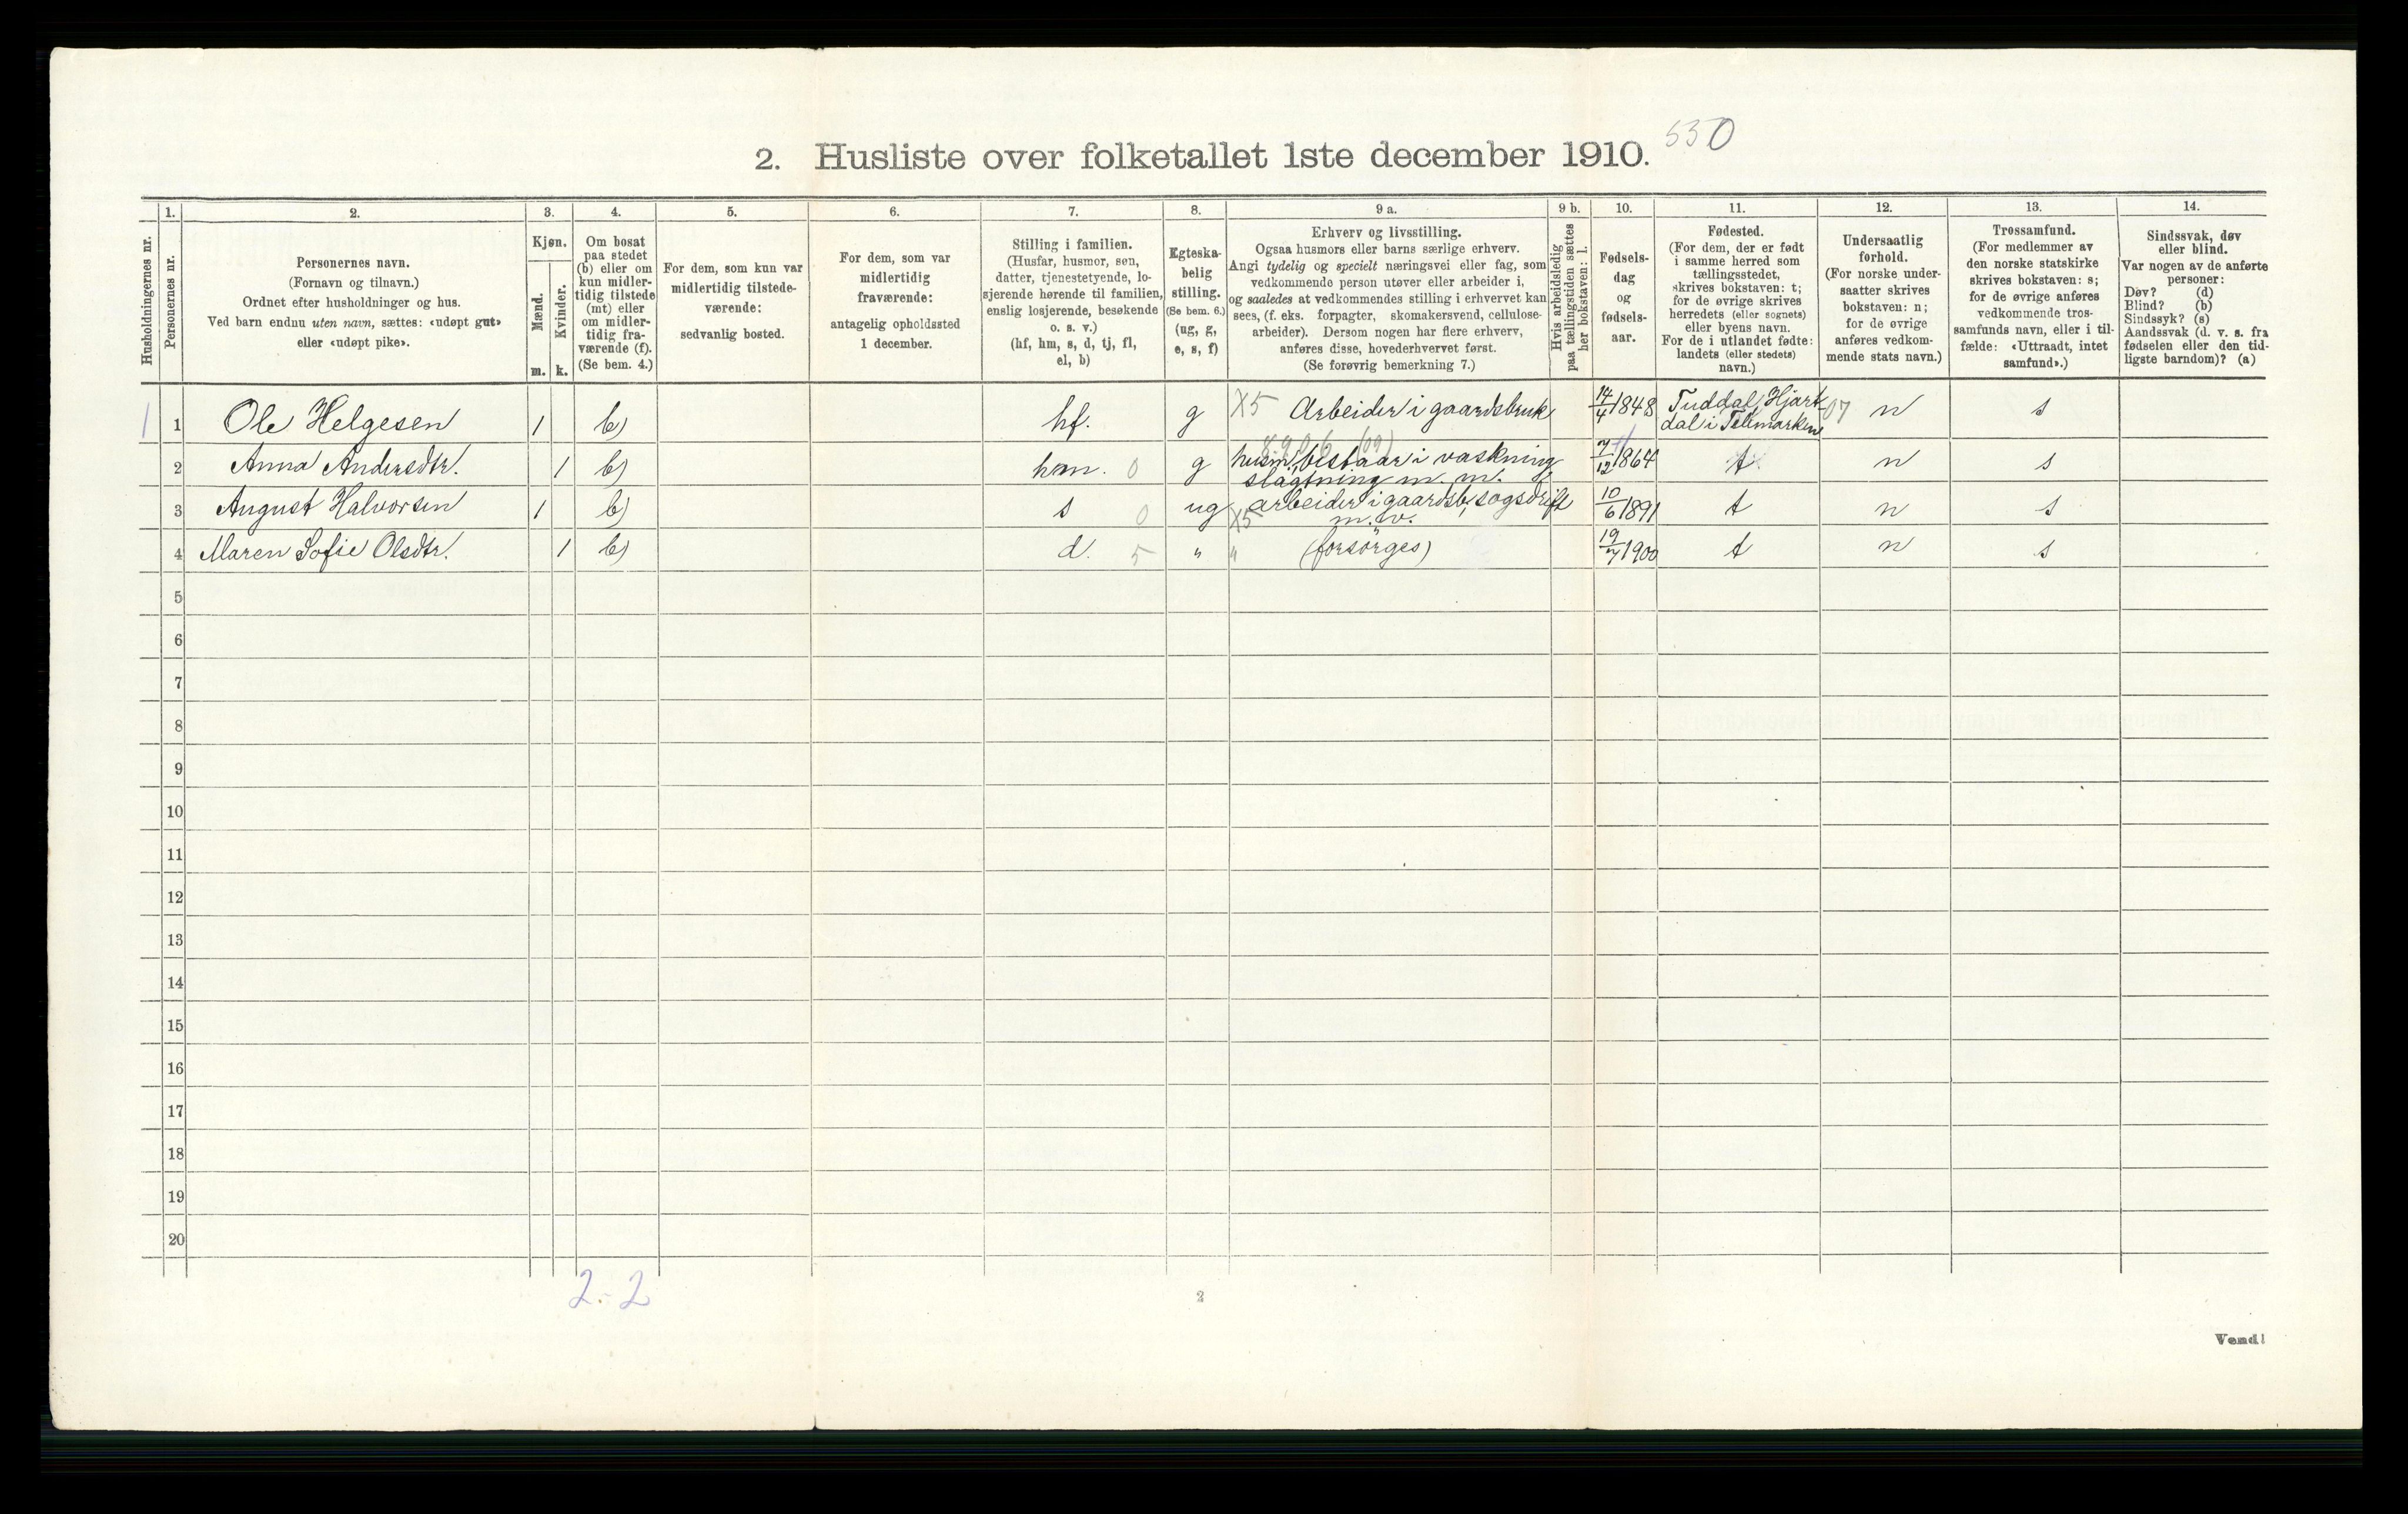 2. Husliste over folketallet 1ste december 1910. 530
Husholdningernes nr.
1. Personernes nr.
2. Personernes navn.
(Fornavn og tilnavn.)
Ordnet efter husholdninger og hus.
Ved barn endnu uten navn, sættes: «udøpt gut»
eller «udøpt pike».
3. Kjøn.
Mænd. m.
Kvinder. k.
4. Om bosat
paa stedet
(b) eller om
kun midler-
tidig tilstede
(mt) eller
om midler-
tidig fra-
værende (f).
(Se bem. 4.)
5. For dem, som kun var
midlertidig tilstede-
værende:
sedvanlig bosted.
6. For dem, som var
midlertidig
fraværende:
antagelig opholdssted
1 december.
7. Stilling i familien.
(Husfar, husmor, søn,
datter, tjenestetyende, lo-
sjerende hørende til familien,
enslig losjerende, besøkende
o. s. v.)
(hf, hm, s, d, tj, fl,
el, b)
8. Egteska-
belig
stilling.
(Se bem. 6.)
(ug, g,
e, s, f)
9 a. Erhverv og livsstilling.
Ogsaa husmors eller barns særlige erhverv.
Angi tydelig og specielt næringsvei eller fag, som
vedkommende person utøver eller arbeider i,
og saaledes at vedkommendes stilling i erhvervet kan
sees, (f. eks. forpagter, skomakersvend, cellulose-
arbeider). Dersom nogen har flere erhverv,
anføres disse, hovederhvervet først.
(Se forøvrig bemerkning 7.)
9 b. Hvis arbeidsledig
paa tællingstiden sættes
her bokstaven: l.
10. Fødsels-
dag
og
fødsels-
aar.
11. Fødested.
(For dem, der er født
i samme herred som
tællingsstedet,
skrives bokstaven: t;
for de øvrige skrives
herredets (eller sognets)
eller byens navn.
For de i utlandet fødte:
landets (eller stedets)
navn.)
12. Undersaatlig
forhold.
(For norske under-
saatter skrives
bokstaven: n;
for de øvrige
anføres vedkom-
mende stats navn.)
13. Trossamfund.
(For medlemmer av
den norske statskirke
skrives bokstaven: s;
for de øvrige anføres
vedkommende tros-
samfunds navn, eller i til-
fælde: «Uttraadt, intet
samfund».)
14. Sindssvak, døv
eller blind.
Var nogen av de anførte
personer:
Døv? (d)
Blind? (b)
Sindssyk? (s)
Aandssvak (d. v. s. fra
fødselen eller den tid-
ligste barndom)? (a)
1 1 Ole Helgesen 1 b) hf. g X5 Arbeider i gaardsbruk 14/4 1848 Tuddal, Hjart-
dal i Telemarken 07 n s
2 Anna Andersdtr. 1 b) hm. 0 g husm., bistaar i vaskning 7/12 1864 t n s
slagtning m. m.
3 August Halvorsen 1 b) s 0 ug X5 arbeider i gaardsb., sagsdrift 10/6 1891 t n s
m. v.
4 Maren Sofie Olsdtr. 1 b) d. 5 " " (forsörges) 19/7 1900 t n s
5
6
7
8
9
10
11
12
13
14
15
16
17
18
19
20
2 - 2
2
Vend!